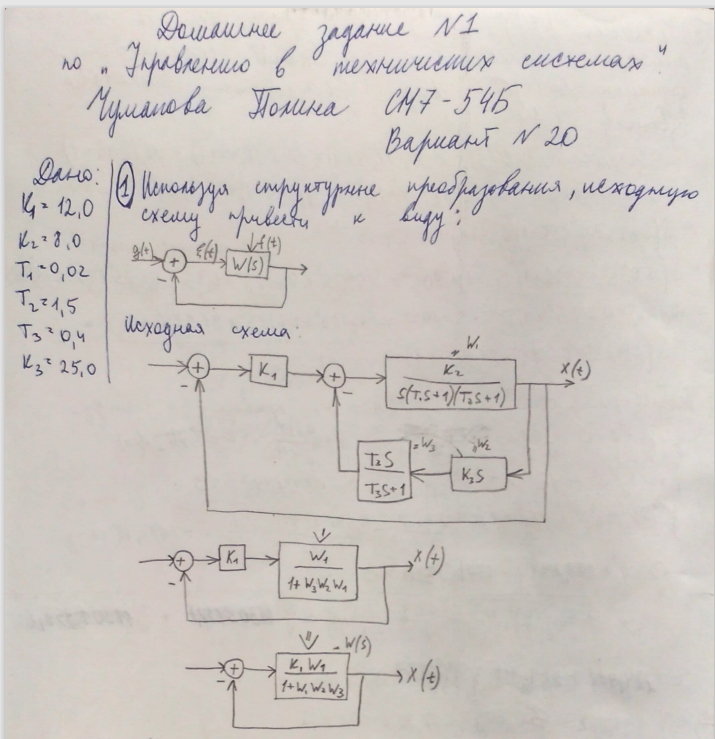 Домашнее задание N1
по „Управлению в технических системах".
Чумакова Полина СМ7-54Б
Вариант N 20
Дано:
K₁ = 12,0
K₂ = 8,0
T₁ = 0,02
T₂ = 1,5
T₃ = 0,4
K₃ = 25,0
① Используя структурные преобразования, исходную
схему привести к виду:
g(t) + - ε(t) f(t) W(s)
Исходная схема:
+ - K₁ + - K₂ / S(T₁S+1)(T₂S+1) W₁ X(t)
T₂S / T₃S+1 W₃ K₃S W₂
+ - K₁ W₁ / 1+W₃W₂W₁ X(t)
+ - K₁W₁ / 1+W₁W₂W₃ W(s) X(t)